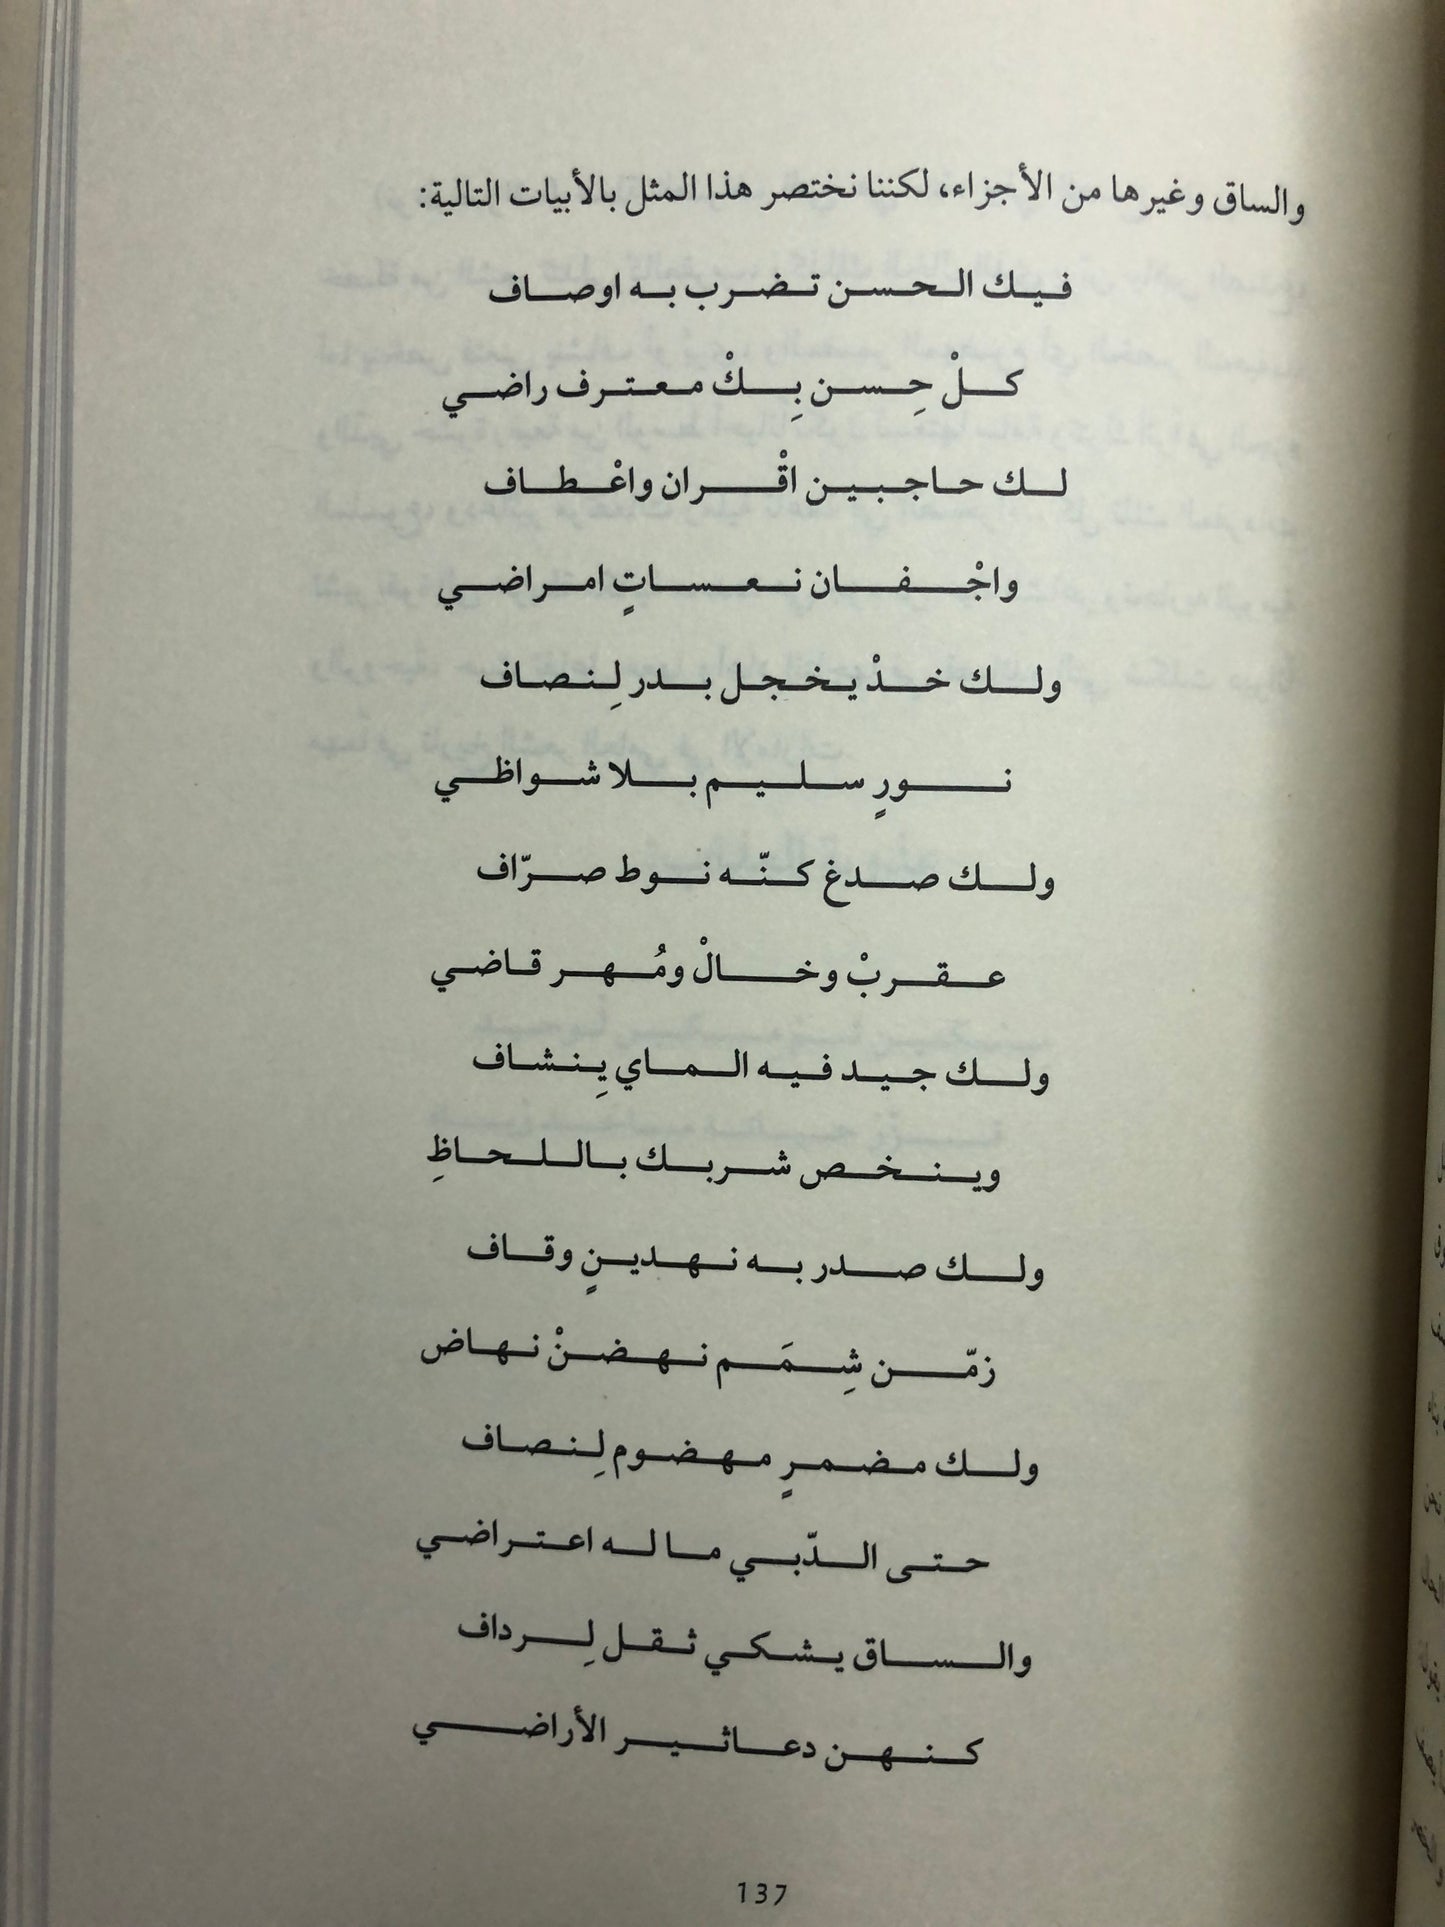 والساق وغيرها من الأجزاء، لكننا نختصر هذا المثل بالأبيات التالية:
فيك الحسن تضرب به اوصاف
كلْ حِسن بِكْ معترف راضي
لك حاجبين اقْران واعْطاف
واجْفان نعساتٍ امراضي
ولك خدْ يخجل بدر لِنصاف
نورٍ سليم بلا شواظي
ولك صدغ كنّه نوط صرّاف
عقربْ وخالْ ومُهر قاضي
ولك جيد فيه الماي يِنشاف
وينخص شربك باللحاظِ
ولك صدر به نهدينٍ وقاف
زمّن شِمَم نهضنْ نهاض
ولك مضمرٍ مهضوم لِنصاف
حتى الدّبي ما له اعتراضي
والساق يشكي ثقل لِرداف
كنهن دعاثير الأراضي
137